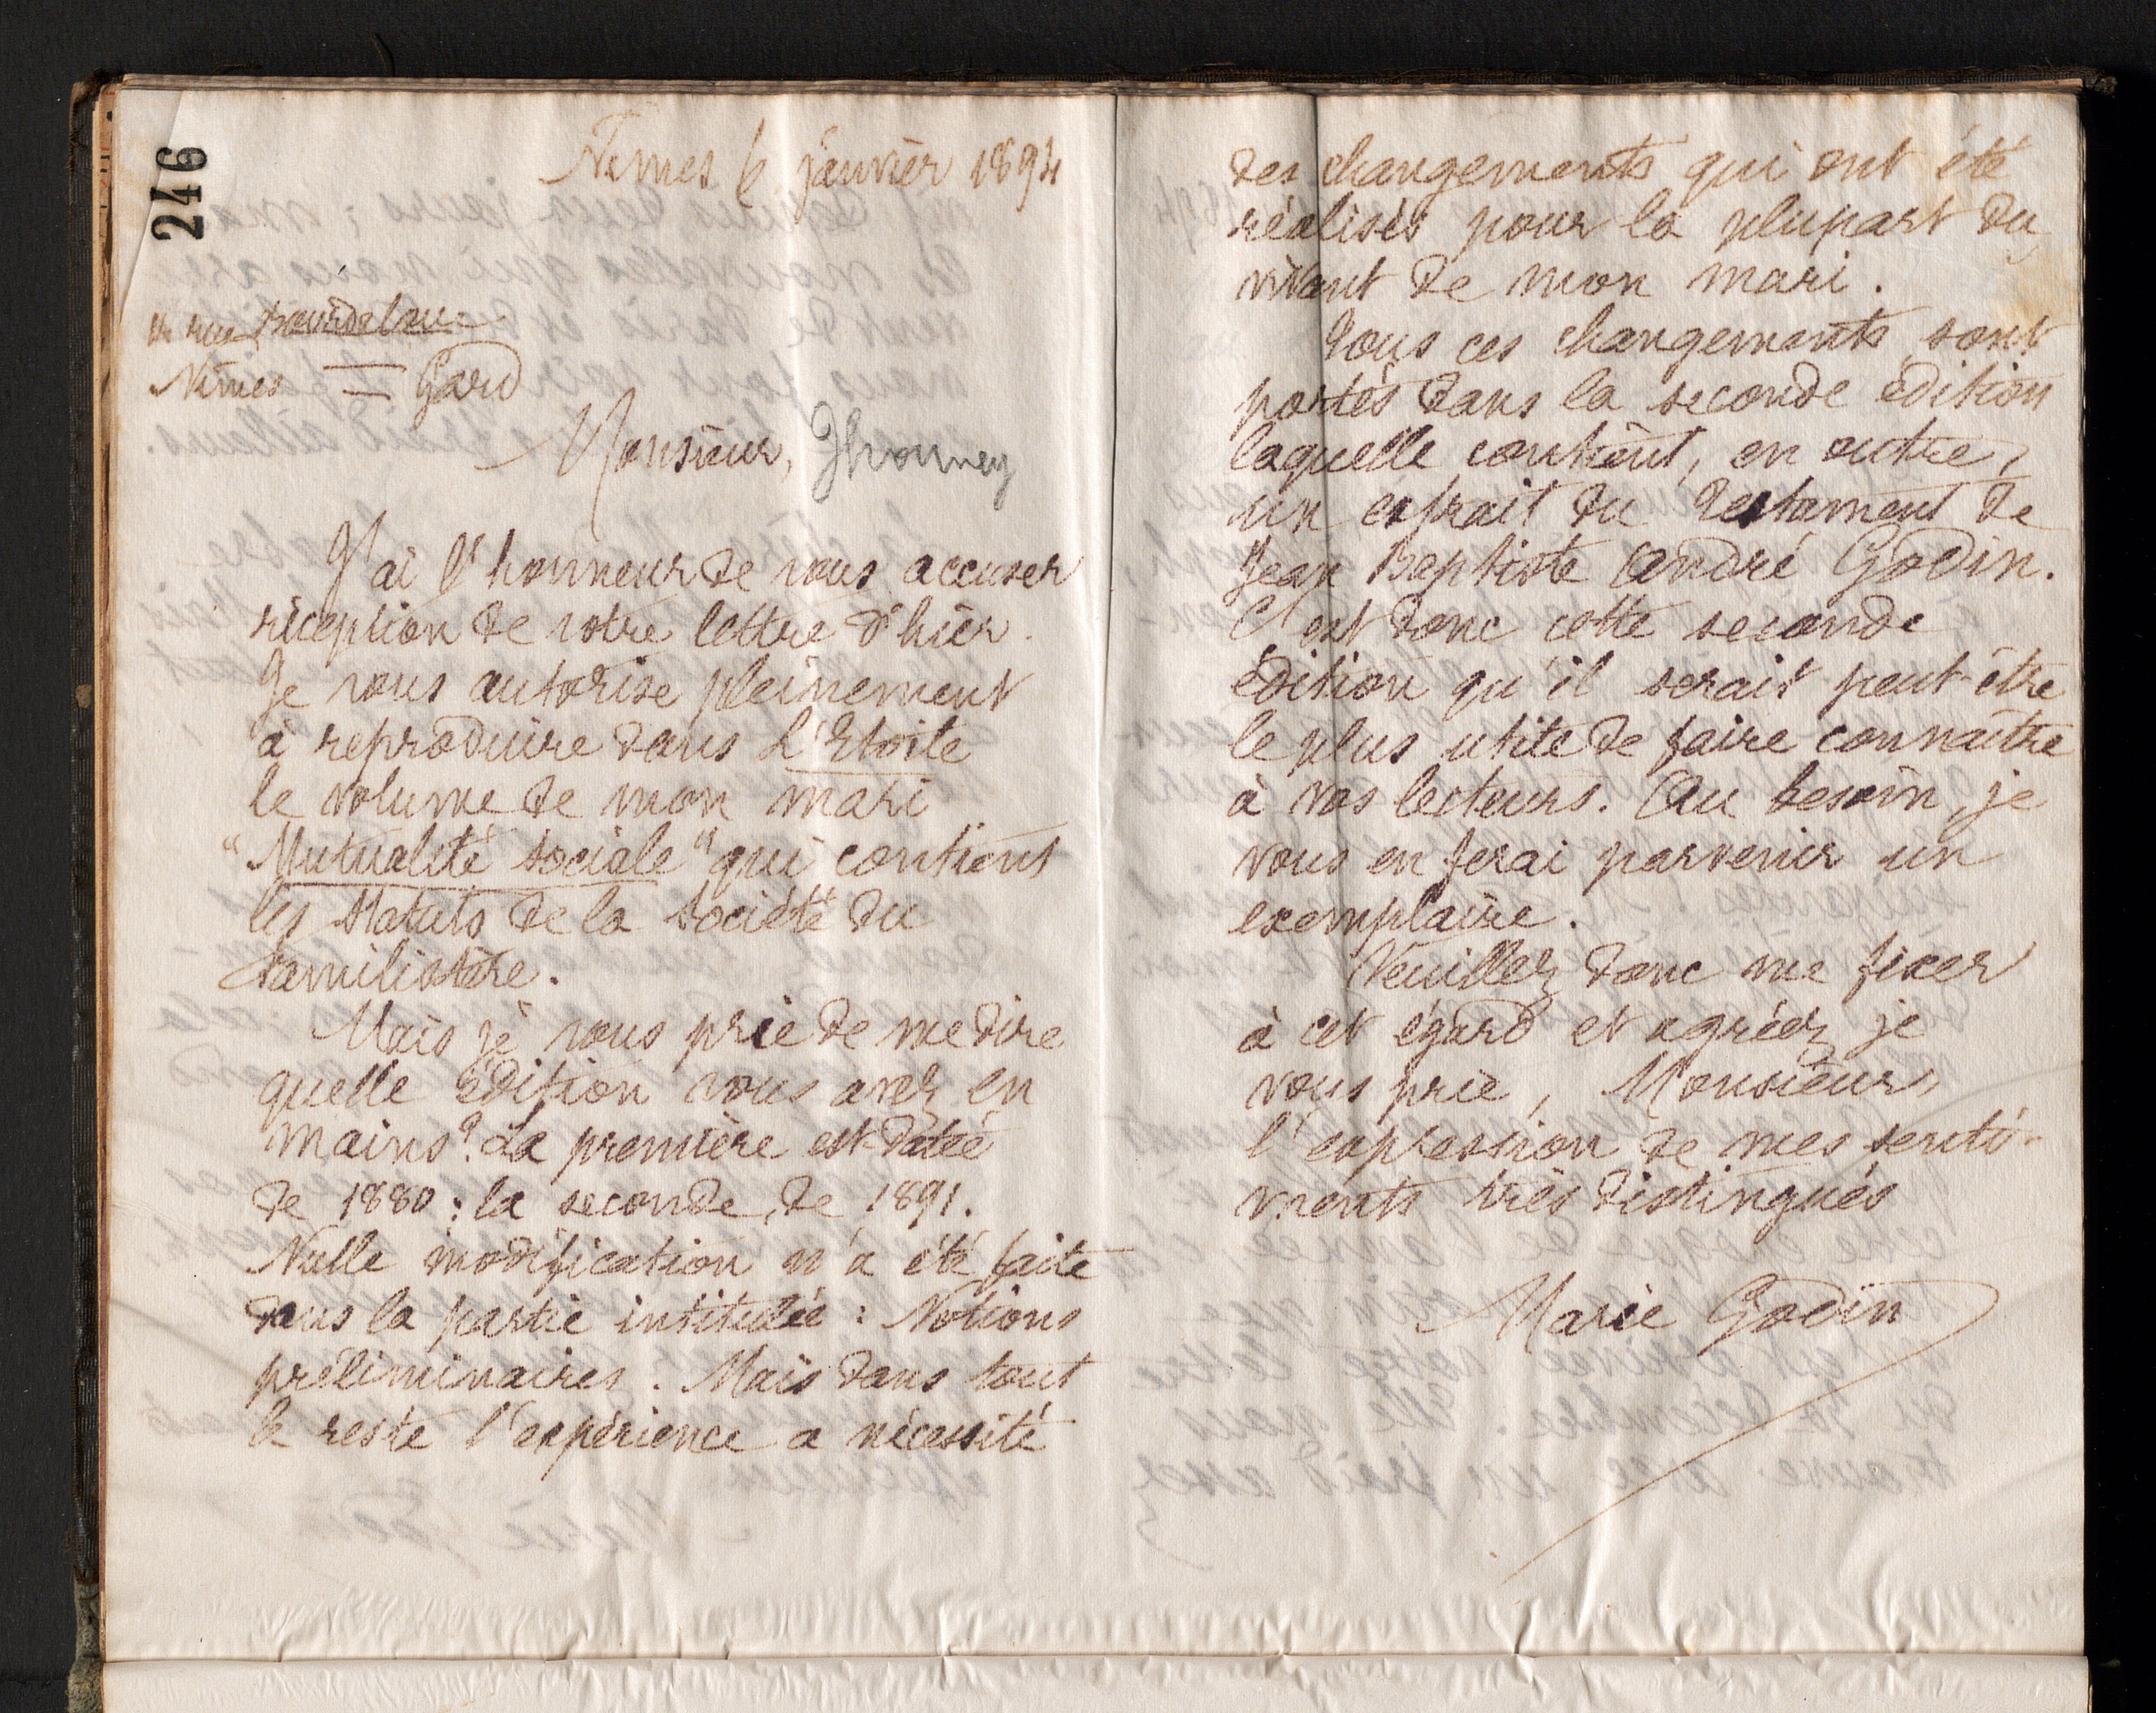 246
Nîmes 6 janvier 1894
rue Bourdaloue
Nîmes = Gard
Monsieur, Jhouney
J'ai l'honneur de vous accuser
réception de votre lettre d'hier.
Je vous autorise pleinement
à reproduire dans L'Etoile
le volume de mon mari
"Mutualité sociale" qui contient
les statuts de la Société du
Familistère.
Mais je vous prie de me dire
quelle édition vous avez en
mains? La première est datée
de 1880 ; la seconde, de 1891.
Nulle modification n'a été faite
dans la partie intitulée : Notions
préliminaires. Mais dans tout
le reste l'expérience a nécessité
des changements qui ont été
réalisés pour la plupart du
vivant de mon mari.
Tous ces changements sont
portés dans la seconde édition
laquelle contient, en outre,
un extrait du testament de
Jean Baptiste André Godin.
C'est donc cette seconde
édition qu'il serait peut-être
le plus utile de faire connaître
à vos lecteurs. Au besoin, je
vous en ferai parvenir un
exemplaire.
Veuillez donc me fixer
à cet égard et agréez, je
vous prie, Monsieur,
l'expression de mes senti-
ments très distingués
Marie Godin